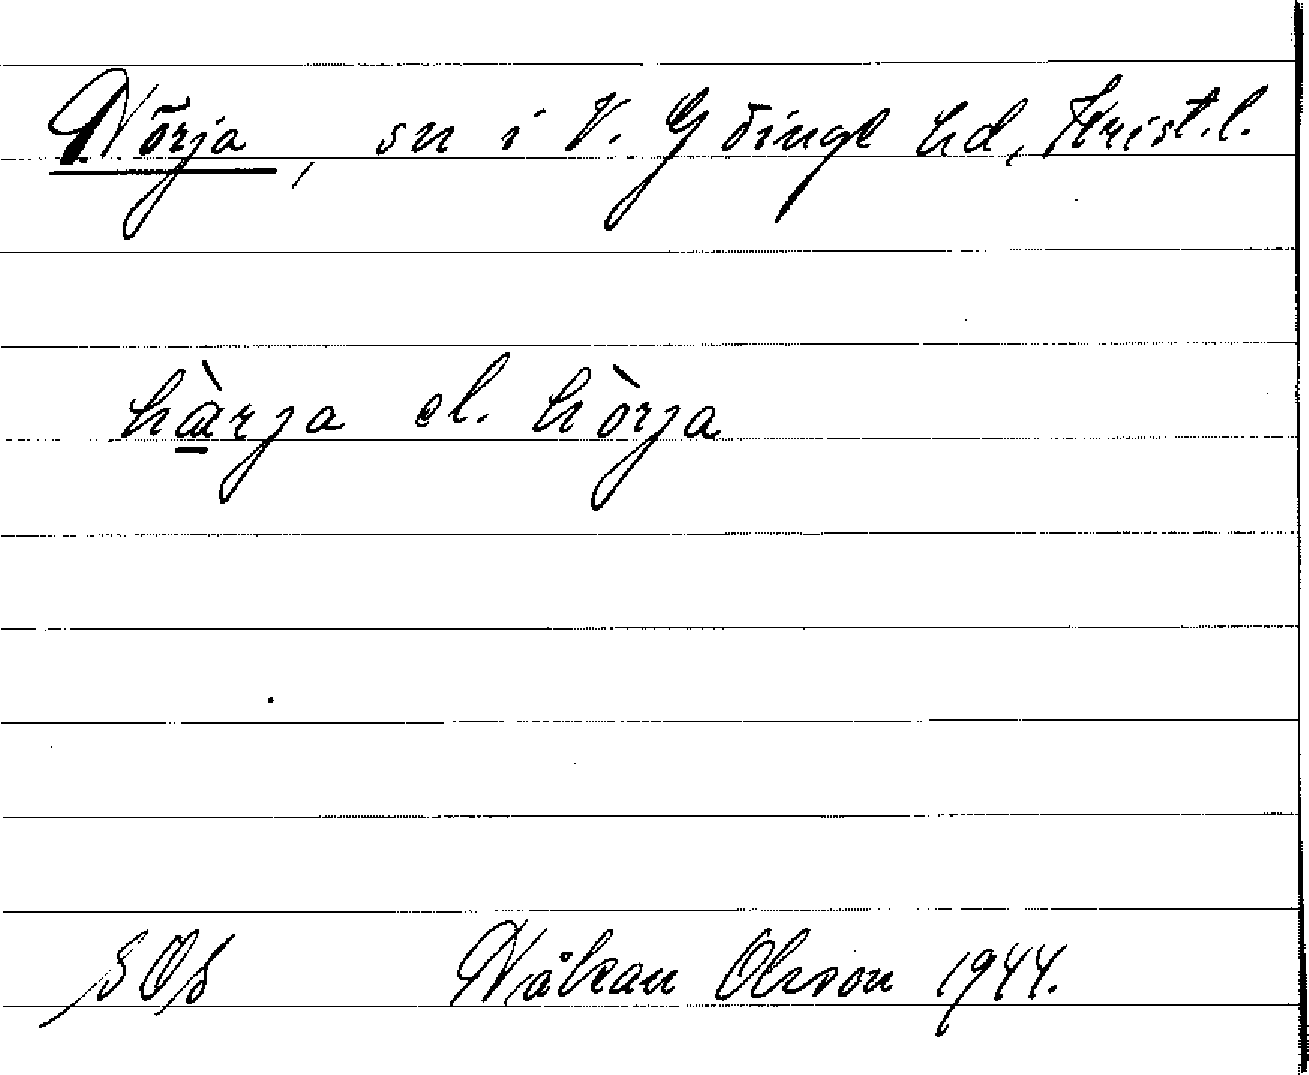 Hörja, sn i V. Göinge hd, Krist.l.
hàrja el. hòrja
SOS Håkan Olsson 1944.